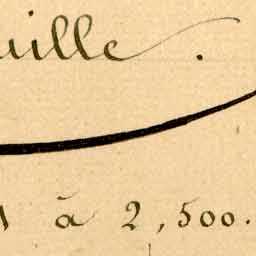 uille.
1 à 2,500.